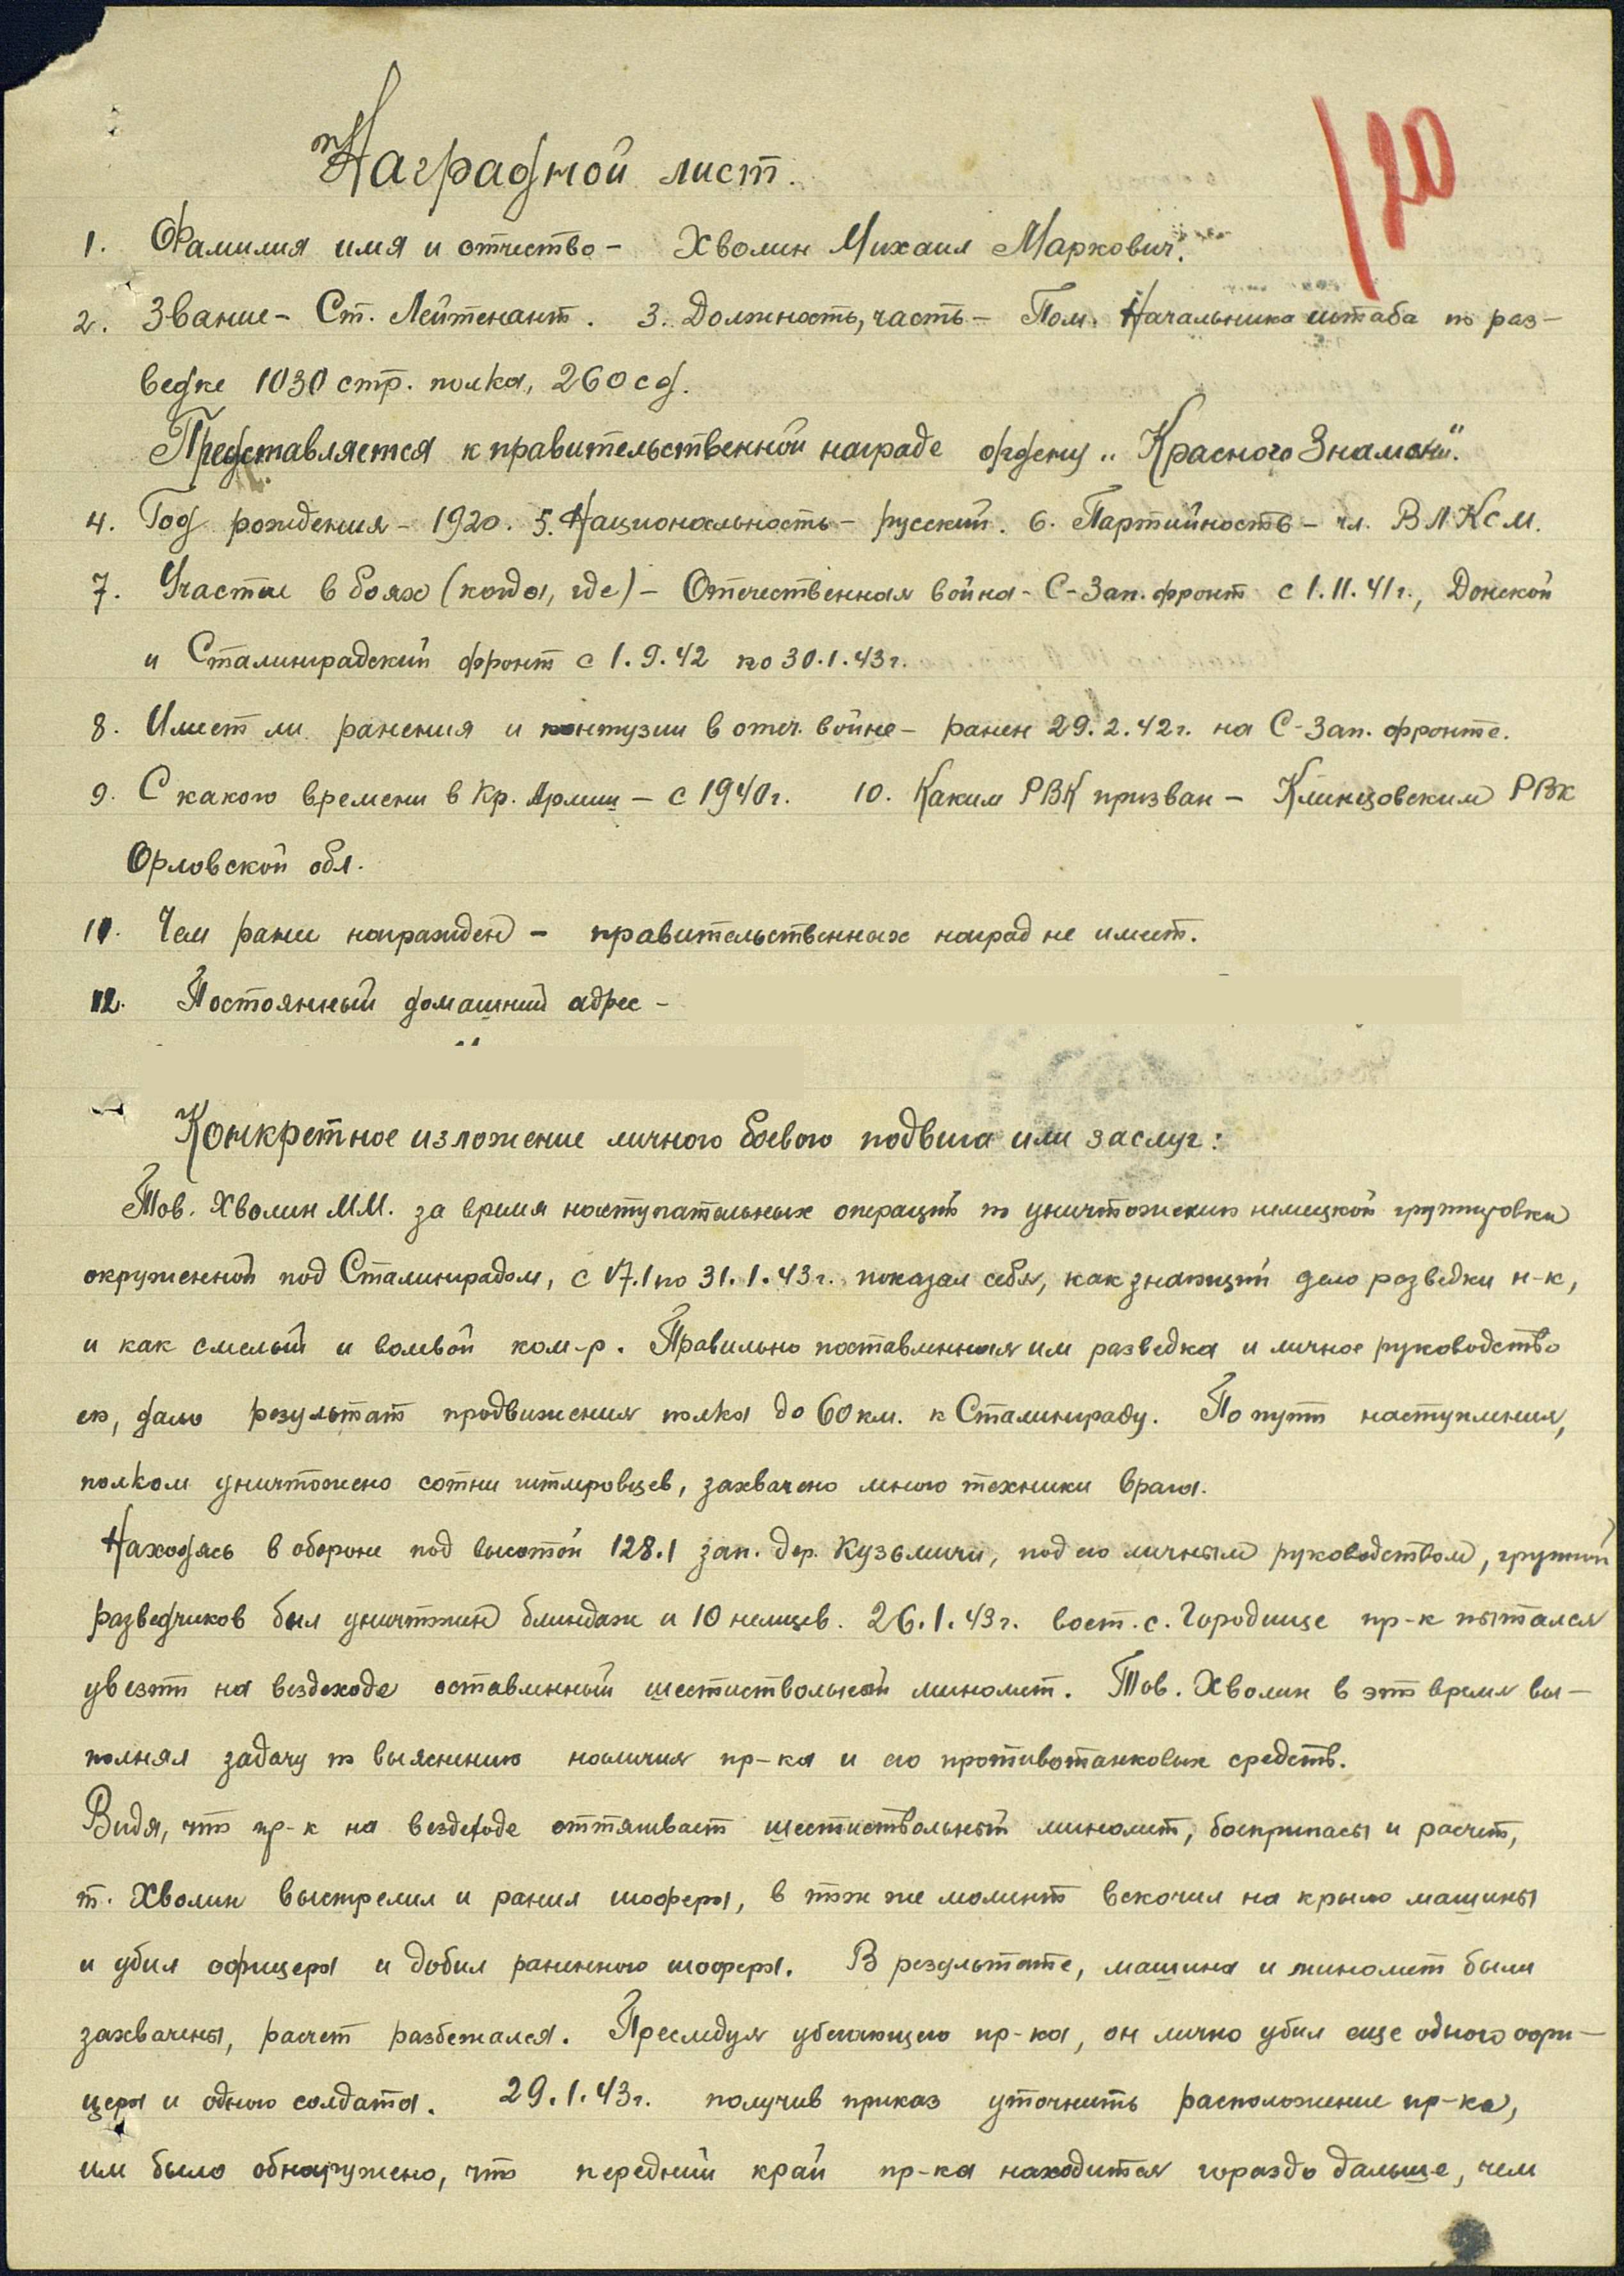 120
Наградной лист.
1. Фамилия имя и отчество - Хволин Михаил Маркович.
2. Звание - Ст. Лейтенант. 3. Должность, часть - Пом. Начальника штаба по раз-
ведке 1030 стр. полка, 260 сд.
Представляется к правительственной награде ордену „Красного Знамени".
4. Год рождения - 1920. 5. Национальность - русский. 6. Партийность - чл. ВЛКСМ.
7. Участие в боях (когда, где) - Отечественная война - С-Зап. фронт с 1.11.41г., Донской
и Сталинградский фронт с 1.9.42 по 30.1.43г.
8. Имеет ли ранения и контузии в отеч. войне - ранен 29.2.42г. на С-Зап. фронте.
9. С какого времени в Кр. Армии - с 1940г. 10. Каким РВК призван - Клинцовским РВК
Орловской обл.
11. Чем ранее награжден - правительственных наград не имеет.
12. Постоянный домашний адрес -
Конкретное изложение личного боевого подвига или заслуг:
Тов. Хволин М.М. за время наступательных операций по уничтожению немецкой группировки
окруженной под Сталинградом, с 17.1 по 31.1.43г. показал себя, как знающий дело разведки н-к,
и как смелый и волевой ком-р. Правильно поставленная им разведка и личное руководство
ею, дало результат продвижения полка до 60 км. к Сталинграду. По пути наступления,
полком уничтожено сотни гитлеровцев, захвачено много техники врага.
Находясь в обороне под высотой 128.1 зап. дер. Кузьмичи, под его личным руководством, группой
разведчиков был уничтожен блиндаж и 10 немцев. 26.1.43г. вост. с. Городище пр-к пытался
увезти на вездеходе оставленный шестиствольный миномет. Тов. Хволин в это время вы-
полнял задачу по выяснению наличия пр-ка и его противотанковых средств.
Видя, что пр-к на вездеходе оттягивает шестиствольный миномет, боеприпасы и расчет,
т. Хволин выстрелил и ранил шофера, в тот же момент вскочил на крыло машины
и убил офицера и добил раненного шофера. В результате, машина и миномет были
захвачены, расчет разбежался. Преследуя убегающего пр-ка, он лично убил еще одного офи-
цера и одного солдата. 29.1.43г. получив приказ уточнить расположение пр-ка,
им было обнаружено, что передний край пр-ка находится гораздо дальше, чем